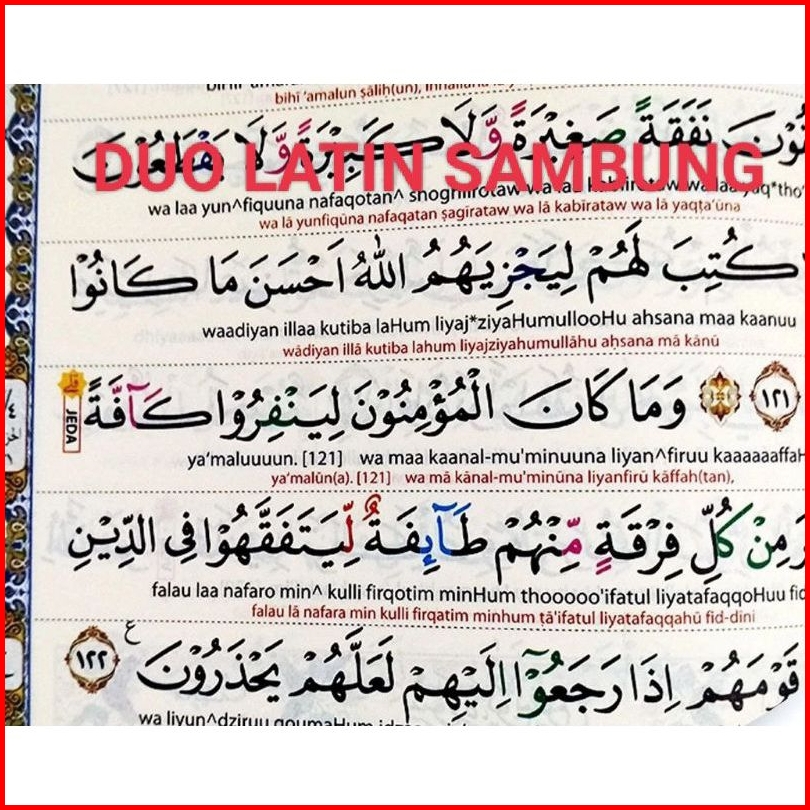 bihī 'amalun ṣāliḥ(un),
DUO LATIN SAMBUNG
نَفَقَةً صَغِيْرَةً وَّلَا كَبِيْرَةً وَّلَا يَقْطَعُوْنَ
wa laa yun^fiquuna nafaqotan^
wa lā yunfiqūna nafaqatan ṣagīrataw wa lā kabīrataw wa lā yaqṭa'ūna
كُتِبَ لَهُمْ لِيَجْزِيَهُمُ اللّٰهُ اَحْسَنَ مَا كَانُوْا
waadiyan illaa kutiba laHum liyaj*ziyaHumullooHu ahsana maa kaanuu
wādiyan illā kutiba lahum liyajziyahumullāhu aḥsana mā kānū
١٢١ وَمَا كَانَ الْمُؤْمِنُوْنَ لِيَنْفِرُوْا كَاۤفَّةً
JEDA
ya'maluuuun. [121] wa maa kaanal-mu'minuuna liyan^firuu kaaaaaaffaH
ya'malūn(a). [121] wa mā kānal-mu'minūna liyanfirū kāffah(tan),
مِنْ كُلِّ فِرْقَةٍ مِّنْهُمْ طَاۤىِٕفَةٌ لِّيَتَفَقَّهُوْا فِى الدِّيْنِ
falau laa nafaro min^ kulli firqotim minHum thoooooo'ifatul liyatafaqqoHuu
falau lā nafara min kulli firqatim minhum ṭā'ifatul liyatafaqqahū fid-dīni
قَوْمَهُمْ اِذَا رَجَعُوْٓا اِلَيْهِمْ لَعَلَّهُمْ يَحْذَرُوْنَ ࣖ ١٢٢
wa liyun^dziruu qoumaHum